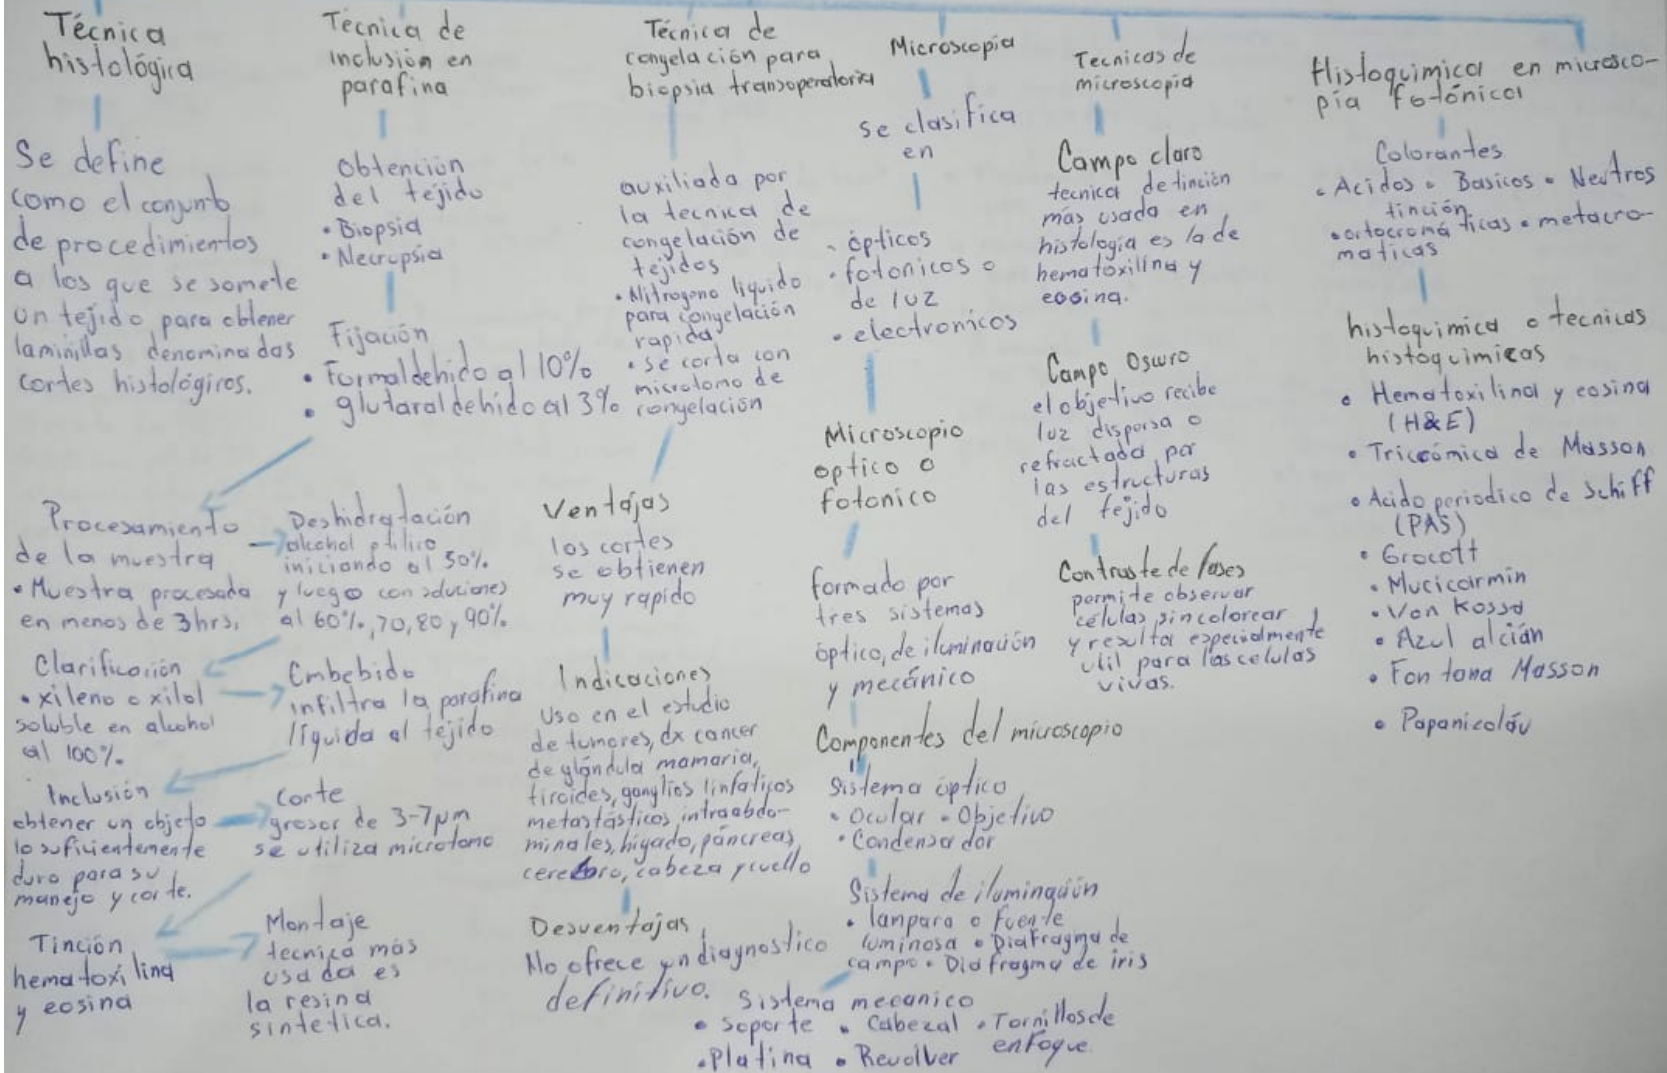 Técnica
histológica
Se define
como el conjunto
de procedimientos
a los que se somete
un tejido para obtener
laminillas denominadas
cortes histológicos.
Técnica de
inclusión en
parafina
Obtención
del tejido
• Biopsia
• Necropsia
Fijación
• Formaldehido al 10%
• glutaraldehido al 3%
Procesamiento
de la muestra
• Muestra procesada
en menos de 3hrs.
Deshidratación
alcohol etílico
iniciando al 50%.
y luego con soluciones
al 60%, 70, 80 y 90%.
Clarificación
• xileno o xilol
soluble en alcohol
al 100%.
Embebido
infiltra la parafina
líquida al tejido
Inclusión
obtener un objeto
lo suficientemente
duro para su
manejo y corte.
Corte
grosor de 3-7µm
se utiliza microtomo
Tinción
hematoxilina
y eosina
Montaje
tecnica más
usada es
la resina
sintetica.
Técnica de
congelación para
biopsia transoperatoria
auxiliada por
la tecnica de
congelación de
tejidos
• Nitrogeno líquido
para congelación
rapida
• se corta con
microtomo de
congelación
Ventajas
los cortes
se obtienen
muy rapido
Indicaciones
Uso en el estudio
de tumores, dx cancer
de glándula mamaria,
tiroides, ganglios linfaticos
metastásticos, intraabdo-
minales, hígado, páncreas,
cerebro, cabeza y cuello
Desventajas
No ofrece un diagnostico
definitivo.
Microscopia
se clasifica
en
• ópticos
• fotonicos o
de luz
• electronicos
Microscopio
optico o
fotonico
formado por
tres sistemas
óptico, de iluminación
y mecánico
Componentes del microscopio
Sistema óptico
• Ocular • Objetivo
• Condensador
Sistema de iluminación
• lampara o fuente
luminosa • Diafragma de
campo • Diafragma de iris
Sistema mecanico
• Soporte • Cabezal • Tornillos de
enfoque
• Platina • Revolver
Tecnicas de
microscopia
Campo claro
tecnica de tinción
más usada en
histología es la de
hematoxilina y
eosina.
Campo Oscuro
el objetivo recibe
luz dispersa o
refractada por
las estructuras
del tejido
Contraste de fases
permite observar
células sin colorear
y resulta especialmente
util para las celulas
vivas.
Histoquimica en microsco-
pía fotónica
Colorantes
• Acidos • Basicos • Neutros
tinción
• ortocromáticas • metacro-
maticas
histoquimica o tecnicas
histoquimicas
• Hematoxilina y eosina
(H&E)
• Tricrómica de Masson
• Acido periodico de Schiff
(PAS)
• Grocott
• Mucicarmin
• Von Kossa
• Azul alcián
• Fontana Masson
• Papanicoláu